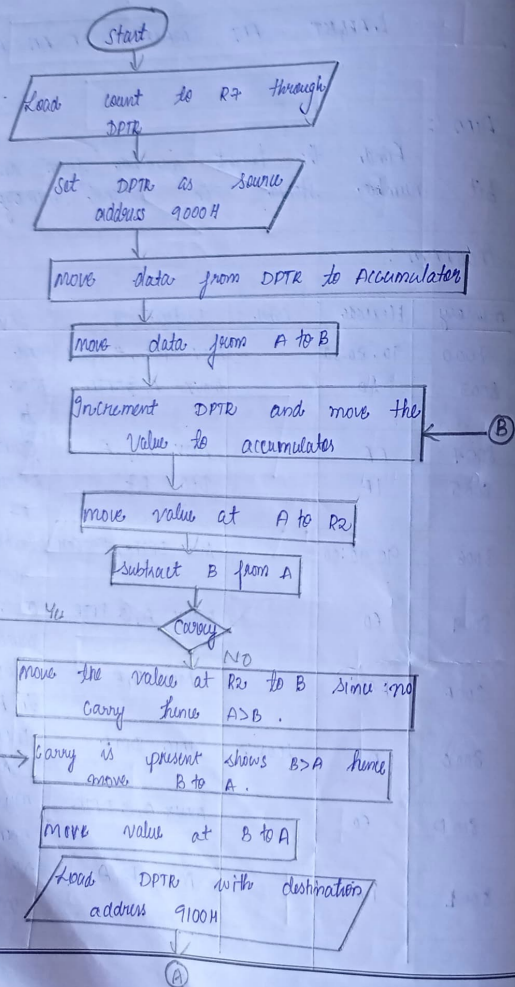 Start
Load count to R7 through
DPTR
Set DPTR as source
address 9000H
Move data from DPTR to Accumulator
Move data from A to B
Increment DPTR and move the
Value to accumulator
B
Move value at A to R2
Subtract B from A
Yes
Carry
NO
Move the value at R2 to B since no
carry hence A>B.
Carry is present shows B>A hence
move B to A.
Move value at B to A
Load DPTR with destination
address 9100H
A